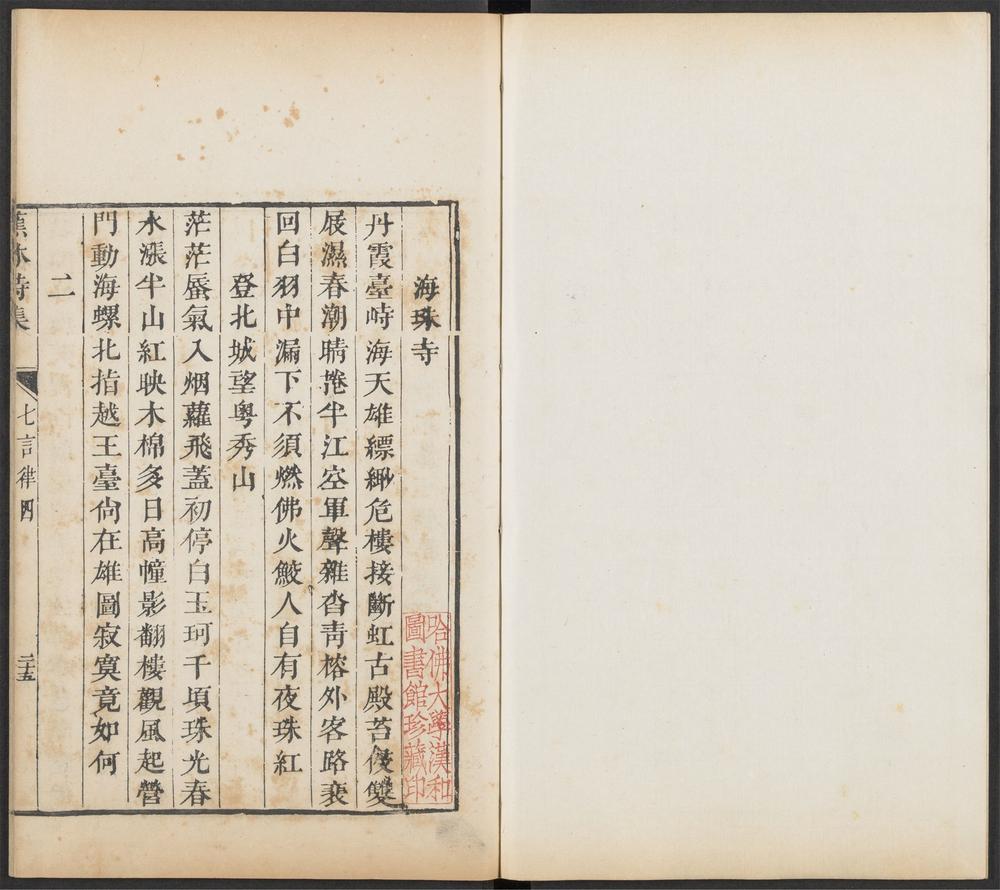 海珠寺
丹霞臺峙海天雄縹緲危樓接斷虹古殿苔侵雙
屐濕春潮晴捲半江空軍聲雜沓靑榕外客路裵
回白羽中漏下不須燃佛火鮫人自有夜珠紅
登北城望粵秀山
茫茫蜃氣入烟蘿飛蓋初停白玉珂千頃珠光春
水漲半山紅映木棉多日高幢影翻樓觀風起營
門動海螺北指越王臺尙在雄圖寂寞竟如何
二
蕉林詩集
七言律四
二十五
哈佛大學漢和
圖書館珍藏印